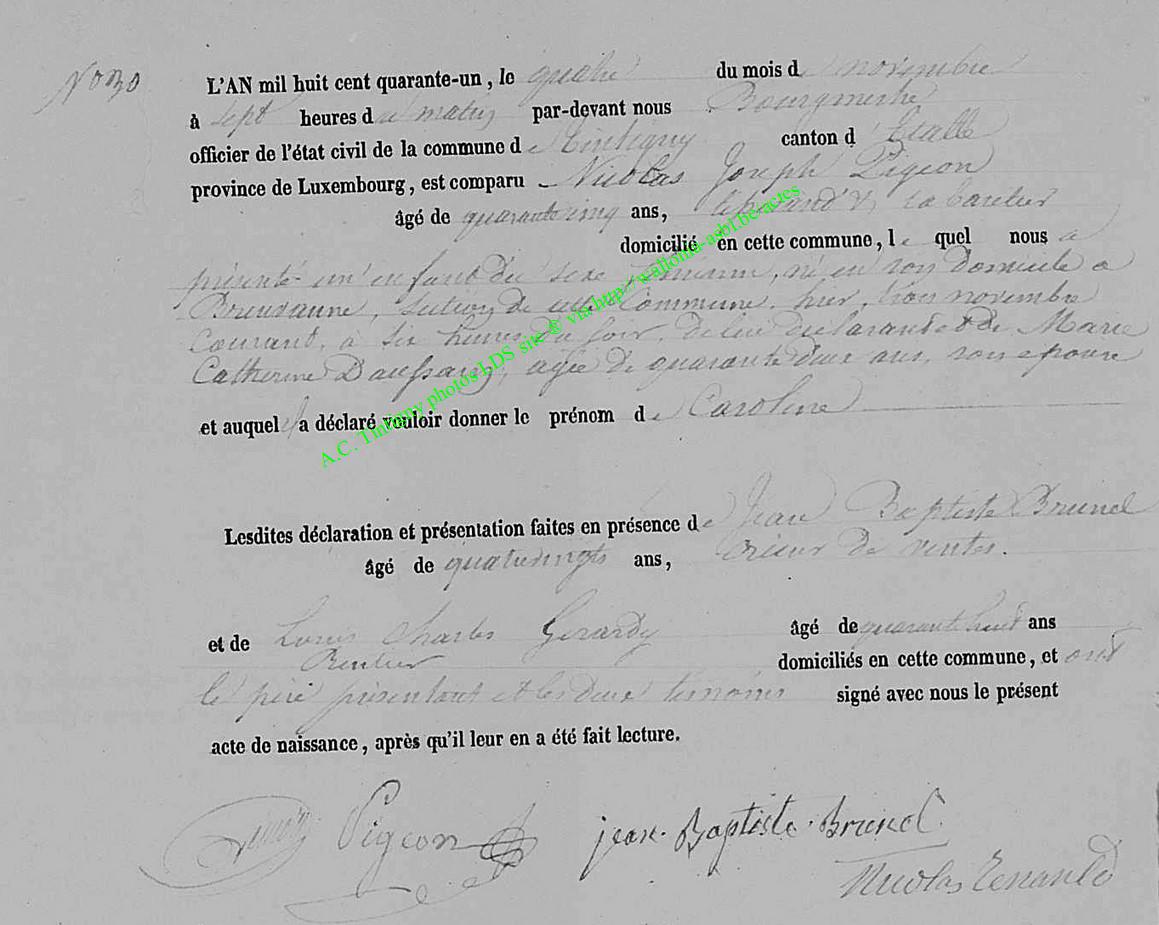 No 30
L'AN mil huit cent quarante-un, le quatre du mois de novembre
à sept heures du matin par-devant nous Bourgmestre
officier de l'état civil de la commune de Tintigny canton d'Etalle
province de Luxembourg, est comparu Nicolas Joseph Pigeon
âgé de quarante cinq ans, cabaretier
domicilié en cette commune, lequel nous a
présenté un enfant du sexe féminin, né en son domicile à
Breuvanne, section de cette Commune, hier, trois novembre
Courant, à six heures du soir, de lui déclarant et de Marie
Catherine, agée de quarante deux ans, son epouse
et auquel il a déclaré vouloir donner le prénom de Caroline
Lesdites déclaration et présentation faites en présence de Jean Baptiste Brunel
âgé de quatrevingts ans, crieur de ventes.
et de Louis Charles Gerardy âgé de quarante huit ans
Rentier domiciliés en cette commune, et ont
le père présentant et les deux témoins signé avec nous le présent
acte de naissance, après qu'il leur en a été fait lecture.
Pigeon jean-Baptiste-Brunel
Nicolas
A.C. Tintigny photos LDS site® via http://wallonia-asbl.be:actes